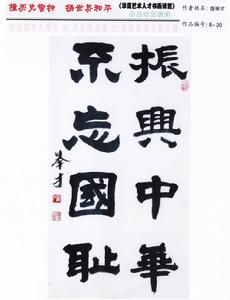 推历史警钟 扬世界和平
《华夏艺术人才书画博览》
作者姓名：庞举才
作品编号：6-30
振興中華
不忘國耻
举才